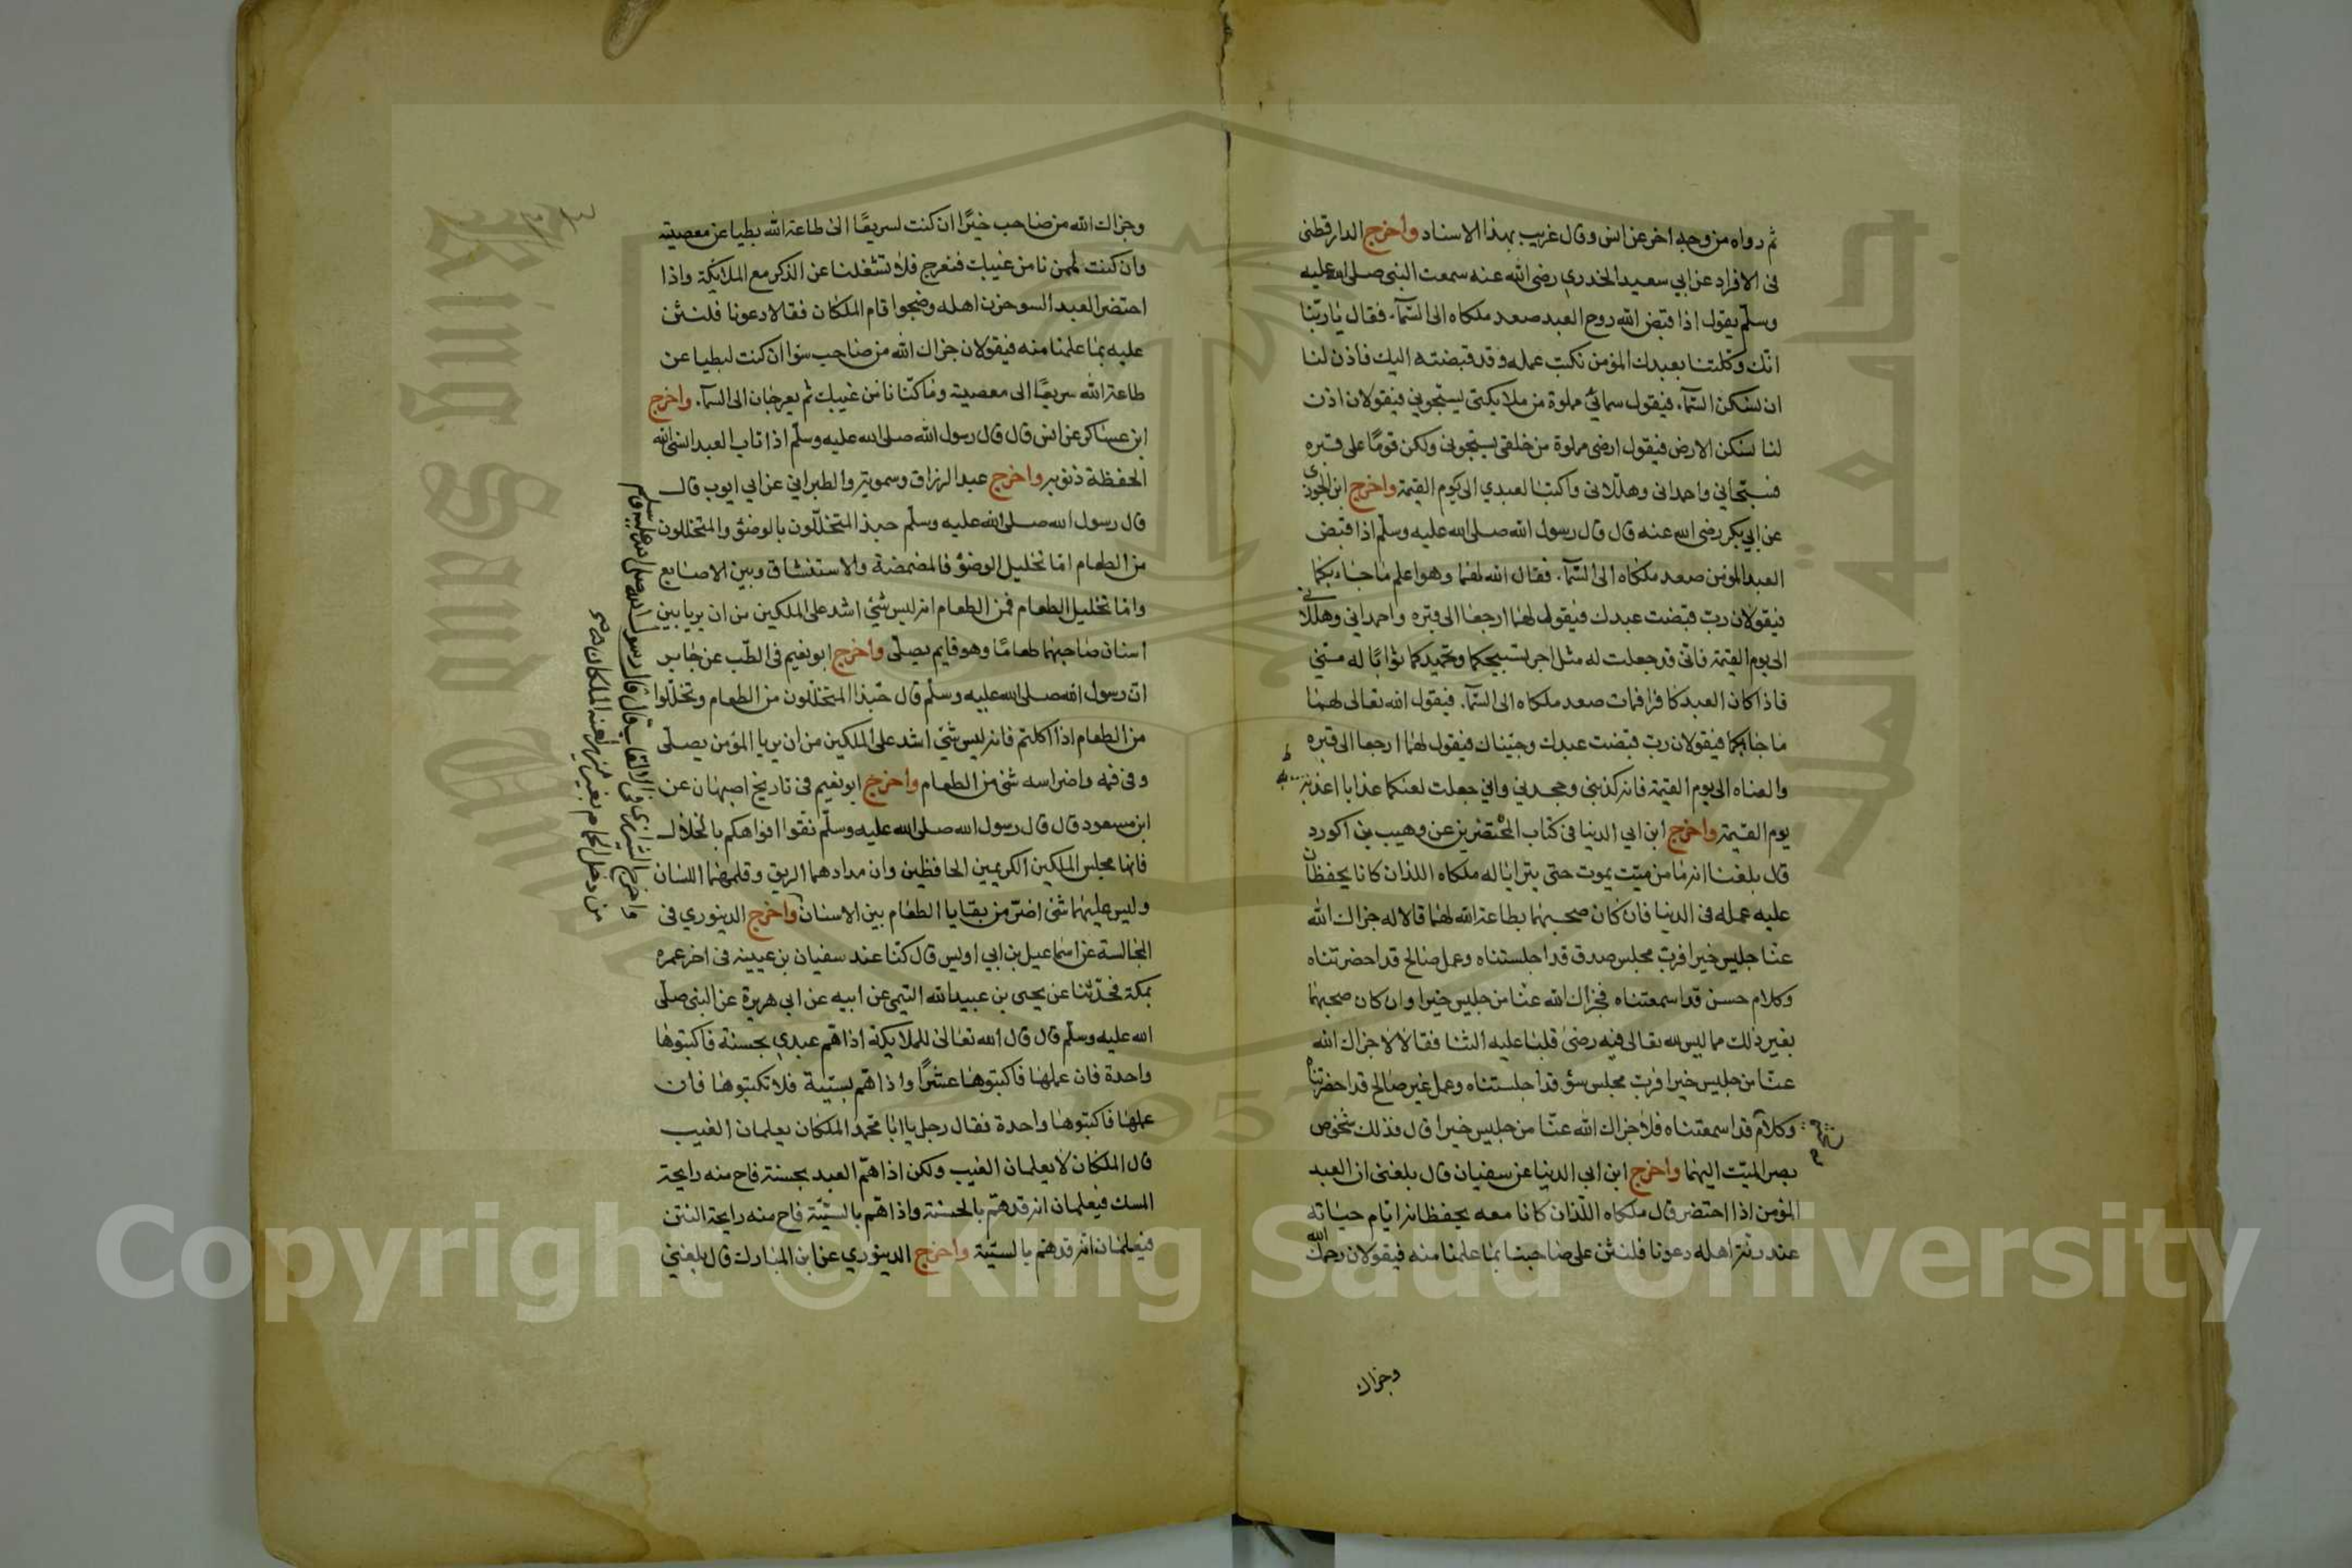 ثم رواه من وجه اخر عن انس وقال غريب بهذا الاسناد واخرج الدارقطنى
فى الافراد عن ابي سعيد الخدري رضى الله عنه سمعت النبى صلى الله عليه
وسلم يقول اذا قبض الله روح العبد صعد ملكاه الى السمآء فقال يا ربنا
انك وكلتنا بعبدك المؤمن نكتب عمله وقد قبضته اليك فاذن لنا
ان نسكن السمآء فيقول سمائى مملوة من ملايكتى يسبحونى فيقولان اذن
لنا نسكن الارض فيقول ارضى مملوة من خلقى يسبحونى ولكن قوما على قبره
فسبحانى واحمدانى وهللانى واكتبا لعبدي الى يوم القيمة واخرج ابن الجوزى
عن ابي بكر رضى الله عنه قال قال رسول الله صلى الله عليه وسلم اذا قبض
العبد المؤمن صعد ملكاه الى السمآء فقال الله لهما وهو اعلم ما جاء بكما
فيقولان رب قبضت عبدك فيقول لهما ارجعا الى قبره واحمداني وهللانى
الى يوم القيمة فانى قد جعلت له مثل اجر تسبيحكما وتحميدكما ثوابا له منى
فاذا كان العبد كافرا فمات صعد ملكاه الى السمآء فيقول الله تعالى لهما
ما جابكما فيقولان رب قبضت عبدك وجيناك فيقول لهما ارجعا الى قبره
والعناه الى يوم القيمة فانه كذبنى وجحدنى وانى جعلت لعنكما عذابا اعذبه
يوم القيمة واخرج ابن ابي الدنيا فى كتاب المحتضرين عن وهيب بن الورد
قال بلغنا انه ما من ميت يموت حتى يترايا له ملكاه اللذان كانا يحفظان
عليه عمله فى الدنيا فان كان صحبهما بطاعة الله لهما قالا له جزاك الله
عنا جليس خيرا فرب مجلس صدق قد اجلستناه وعمل صالح قد احضرتناه
وكلام حسن قد اسمعتناه فجزاك الله عنا من جليس خيرا وان كان صحبهما
بغير ذلك مما ليس لله تعالى فيه رضى قلبا عليه الثنا فقالا لا جزاك الله
عنا من جليس خيرا فرب مجلس سؤ قد اجلستناه وعمل غير صالح قد احضرتناه
وكلام قد اسمعتناه فلا جزاك الله عنا من جليس خيرا قال فذلك شخوص
بصر الميت اليهما واخرج ابن ابي الدنيا عن سفيان قال بلغنى ان العبد
المؤمن اذا احتضر قال ملكاه اللذان كانا معه يحفظانه ايام حياته
عند رنة اهله دعونا فلنثن على صاحبنا بما علمنا منه فيقولان رحمك الله
وجزاك
وجزاك الله من صاحب خيرا ان كنت لسريعا الى طاعة الله بطيا عن معصيته
وان كنت لممن نامن غيبك فنعرج فلا تشغلنا عن الذكر مع الملايكة واذا
احتضر العبد السو حزن اهله وضجوا قام الملكان فقالا دعونا فلنثن
عليه بما علمنا منه فيقولان جزاك الله من صاحب سؤا ان كنت لبطيا عن
طاعة الله سريعا الى معصيته وما كنا نامن غيبك ثم يعرجان الى السمآء واخرج
ابن عساكر عن انس قال قال رسول الله صلى الله عليه وسلم اذا تاب العبد انسى الله
الحفظة ذنوبه واخرج عبد الرزاق وسمويه والطبرانى عن ابي ايوب قال
قال رسول الله صلى الله عليه وسلم حبذ المتخللون بالوضؤ والمتخللون
من الطعام اما تخليل الوضؤ فالمضمضة والاستنشاق وبين الاصابع
واما تخليل الطعام فمن الطعام انه ليس شئ اشد على الملكين من ان يريا بين
اسنان صاحبهما طعاما وهو قايم يصلى واخرج ابو نعيم فى الطب عن جابر
ان رسول الله صلى الله عليه وسلم قال حبذا المتخللون من الطعام وتخللوا
من الطعام اذا اكلتم فانه ليس شئ اشد على الملكين من ان يريا المؤمن يصلى
وفى فمه واضراسه شئ من الطعام واخرج ابو نعيم فى تاريخ اصبهان عن
ابن مسعود قال قال رسول الله صلى الله عليه وسلم نقوا افواهكم بالخلال
فانها مجلس الملكين الكريمين الحافظين وان مدادهما الريق وقلمهما اللسان
وليس عليهما شئ اضر من بقايا الطعام بين الاسنان واخرج الدينوري فى
المجالسة عن اسماعيل بن ابي اويس قال كنا عند سفيان بن عيينه فى اخر عمره
بمكة فحدثنا عن يحيى بن عبيد الله التيمى عن ابيه عن ابى هريرة عن النبى صلى
الله عليه وسلم قال قال الله تعالى للملايكة اذا هم عبدي بحسنة فاكتبوها
واحدة فان عملها فاكتبوها عشرا واذا هم بسيية فلا تكتبوها فان
عملها فاكتبوها واحدة فقال رجل يا ابا محمد الملكان يعلمان الغيب
قال الملكان لا يعلمان الغيب ولكن اذا هم العبد بحسنة فاح منه رايحة
المسك فيعلمان انه قد هم بالحسنة واذا هم بالسيئة فاح منه رايحة النتن
فيعلمان انه قد هم بالسيية واخرج الدينوري عن ابن المبارك قال بلغنى
واخرج الشيرازى فى الالقاب قال قال رسول الله صلى الله عليه وسلم
من دخل الحمام بغير ميزر لعنه الملكان
جامعة الملك سعود
King Saud University
1957
Copyright © King Saud University